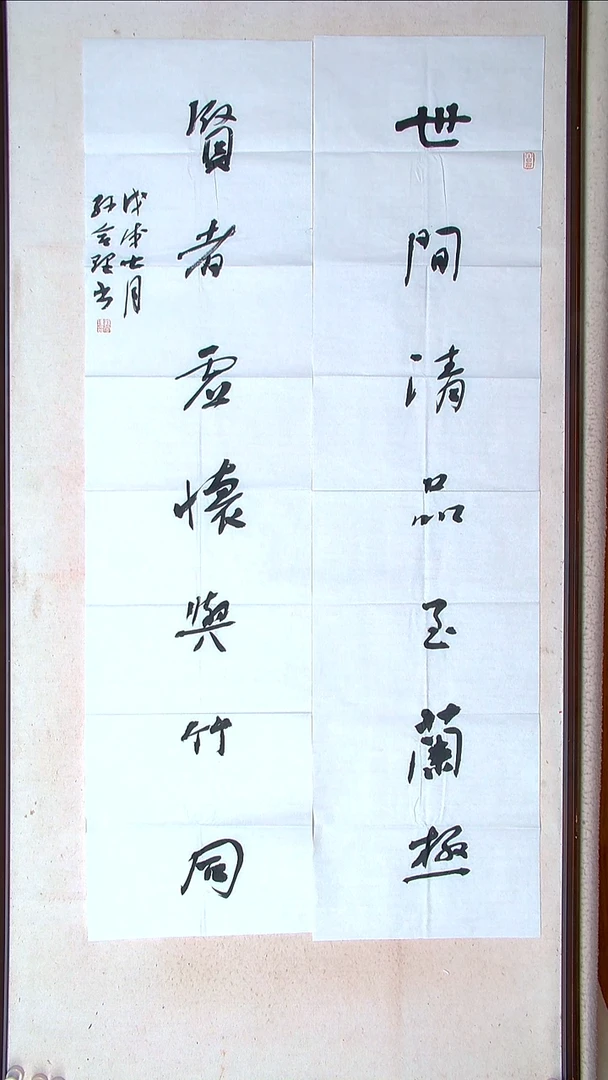 世間清品至蘭極
賢者虛懷與竹同
戊戌七月
孫言理書